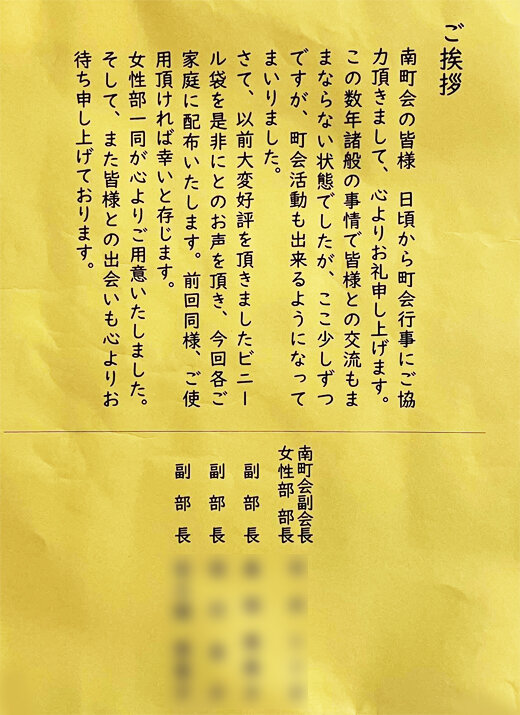 ご挨拶
南町会の皆様　日頃から町会行事にご協
力頂きまして、心よりお礼申し上げます。
この数年諸般の事情で皆様との交流もま
まならない状態でしたが、ここ少しずつ
ですが、町会活動も出来るようになって
まいりました。
さて、以前大変好評を頂きましたビニー
ル袋を是非にとのお声を頂き、今回各ご
家庭に配布いたします。前回同様、ご使
用頂ければ幸いと存じます。
女性部一同が心よりご用意いたしました。
そして、また皆様との出会いも心よりお
待ち申し上げております。
南町会副会長
女性部 部長
副 部 長
副 部 長
副 部 長